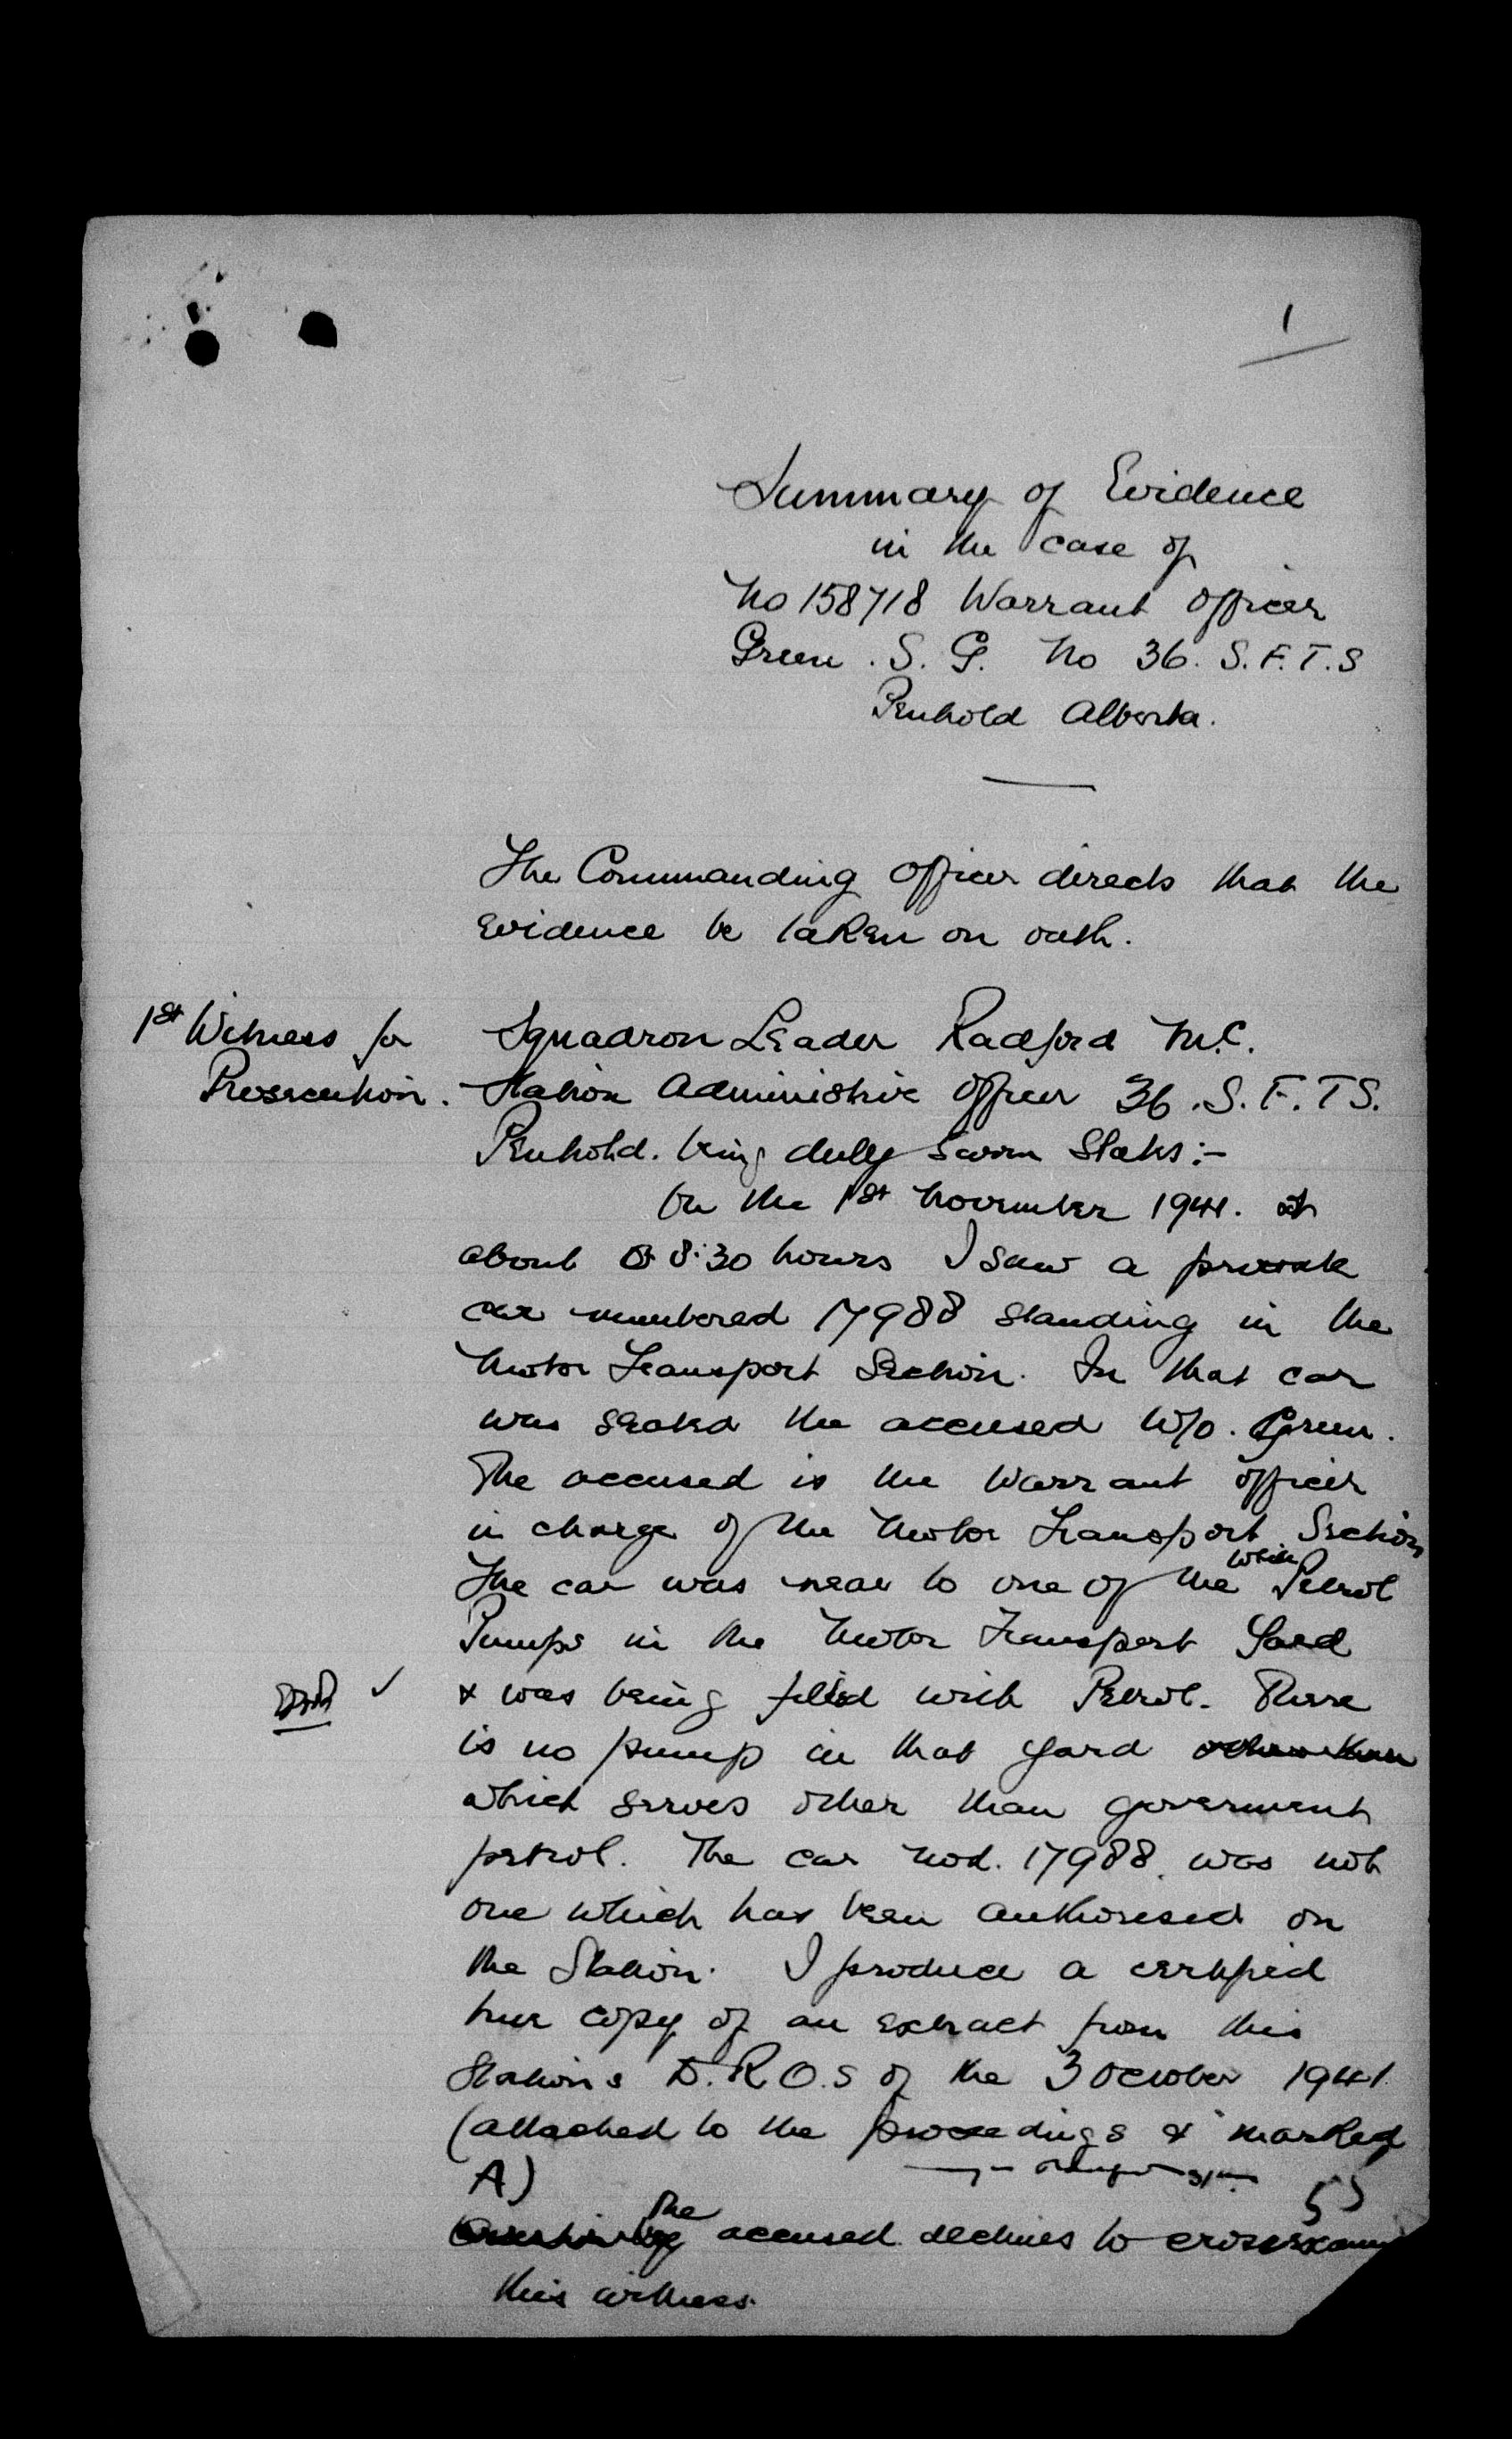 1
Summary of Evidence
in the case of
No 158718 Warrant Officer
Green . S. G. No 36. S.F.T.S
Penhold Alberta.
The Commanding Officer directs that the
evidence be taken on oath.
1st Witness for
Prosecution.
Squadron Leader Radford M.C.
Station Administive Officer 36.S.F.T.S.
Penhold. being duly sworn States:-
On the 1st November 1941. at
about 08:30 hours I saw a private
car numbered 17988 standing in the
Motor Transport Section. In that car
was seated the accused W/O. Green.
The accused is the Warrant Officer
in charge of the Motor Transport Section
The car was near to one of the Petrol
Pumps in the Motor Transport Yard
✓ & was being filled with Petrol. There
is no pump in that yard other than
which serves other than goverment
petrol. The car nod. 17988. was not
one which has been authorised on
the Station. I produce a certified
true copy of an extract from this
Stations D.R.O.S of the 3 October 1941.
(attached to the proceedings & marked
A)
The accused declines to crossexamine
this witness.